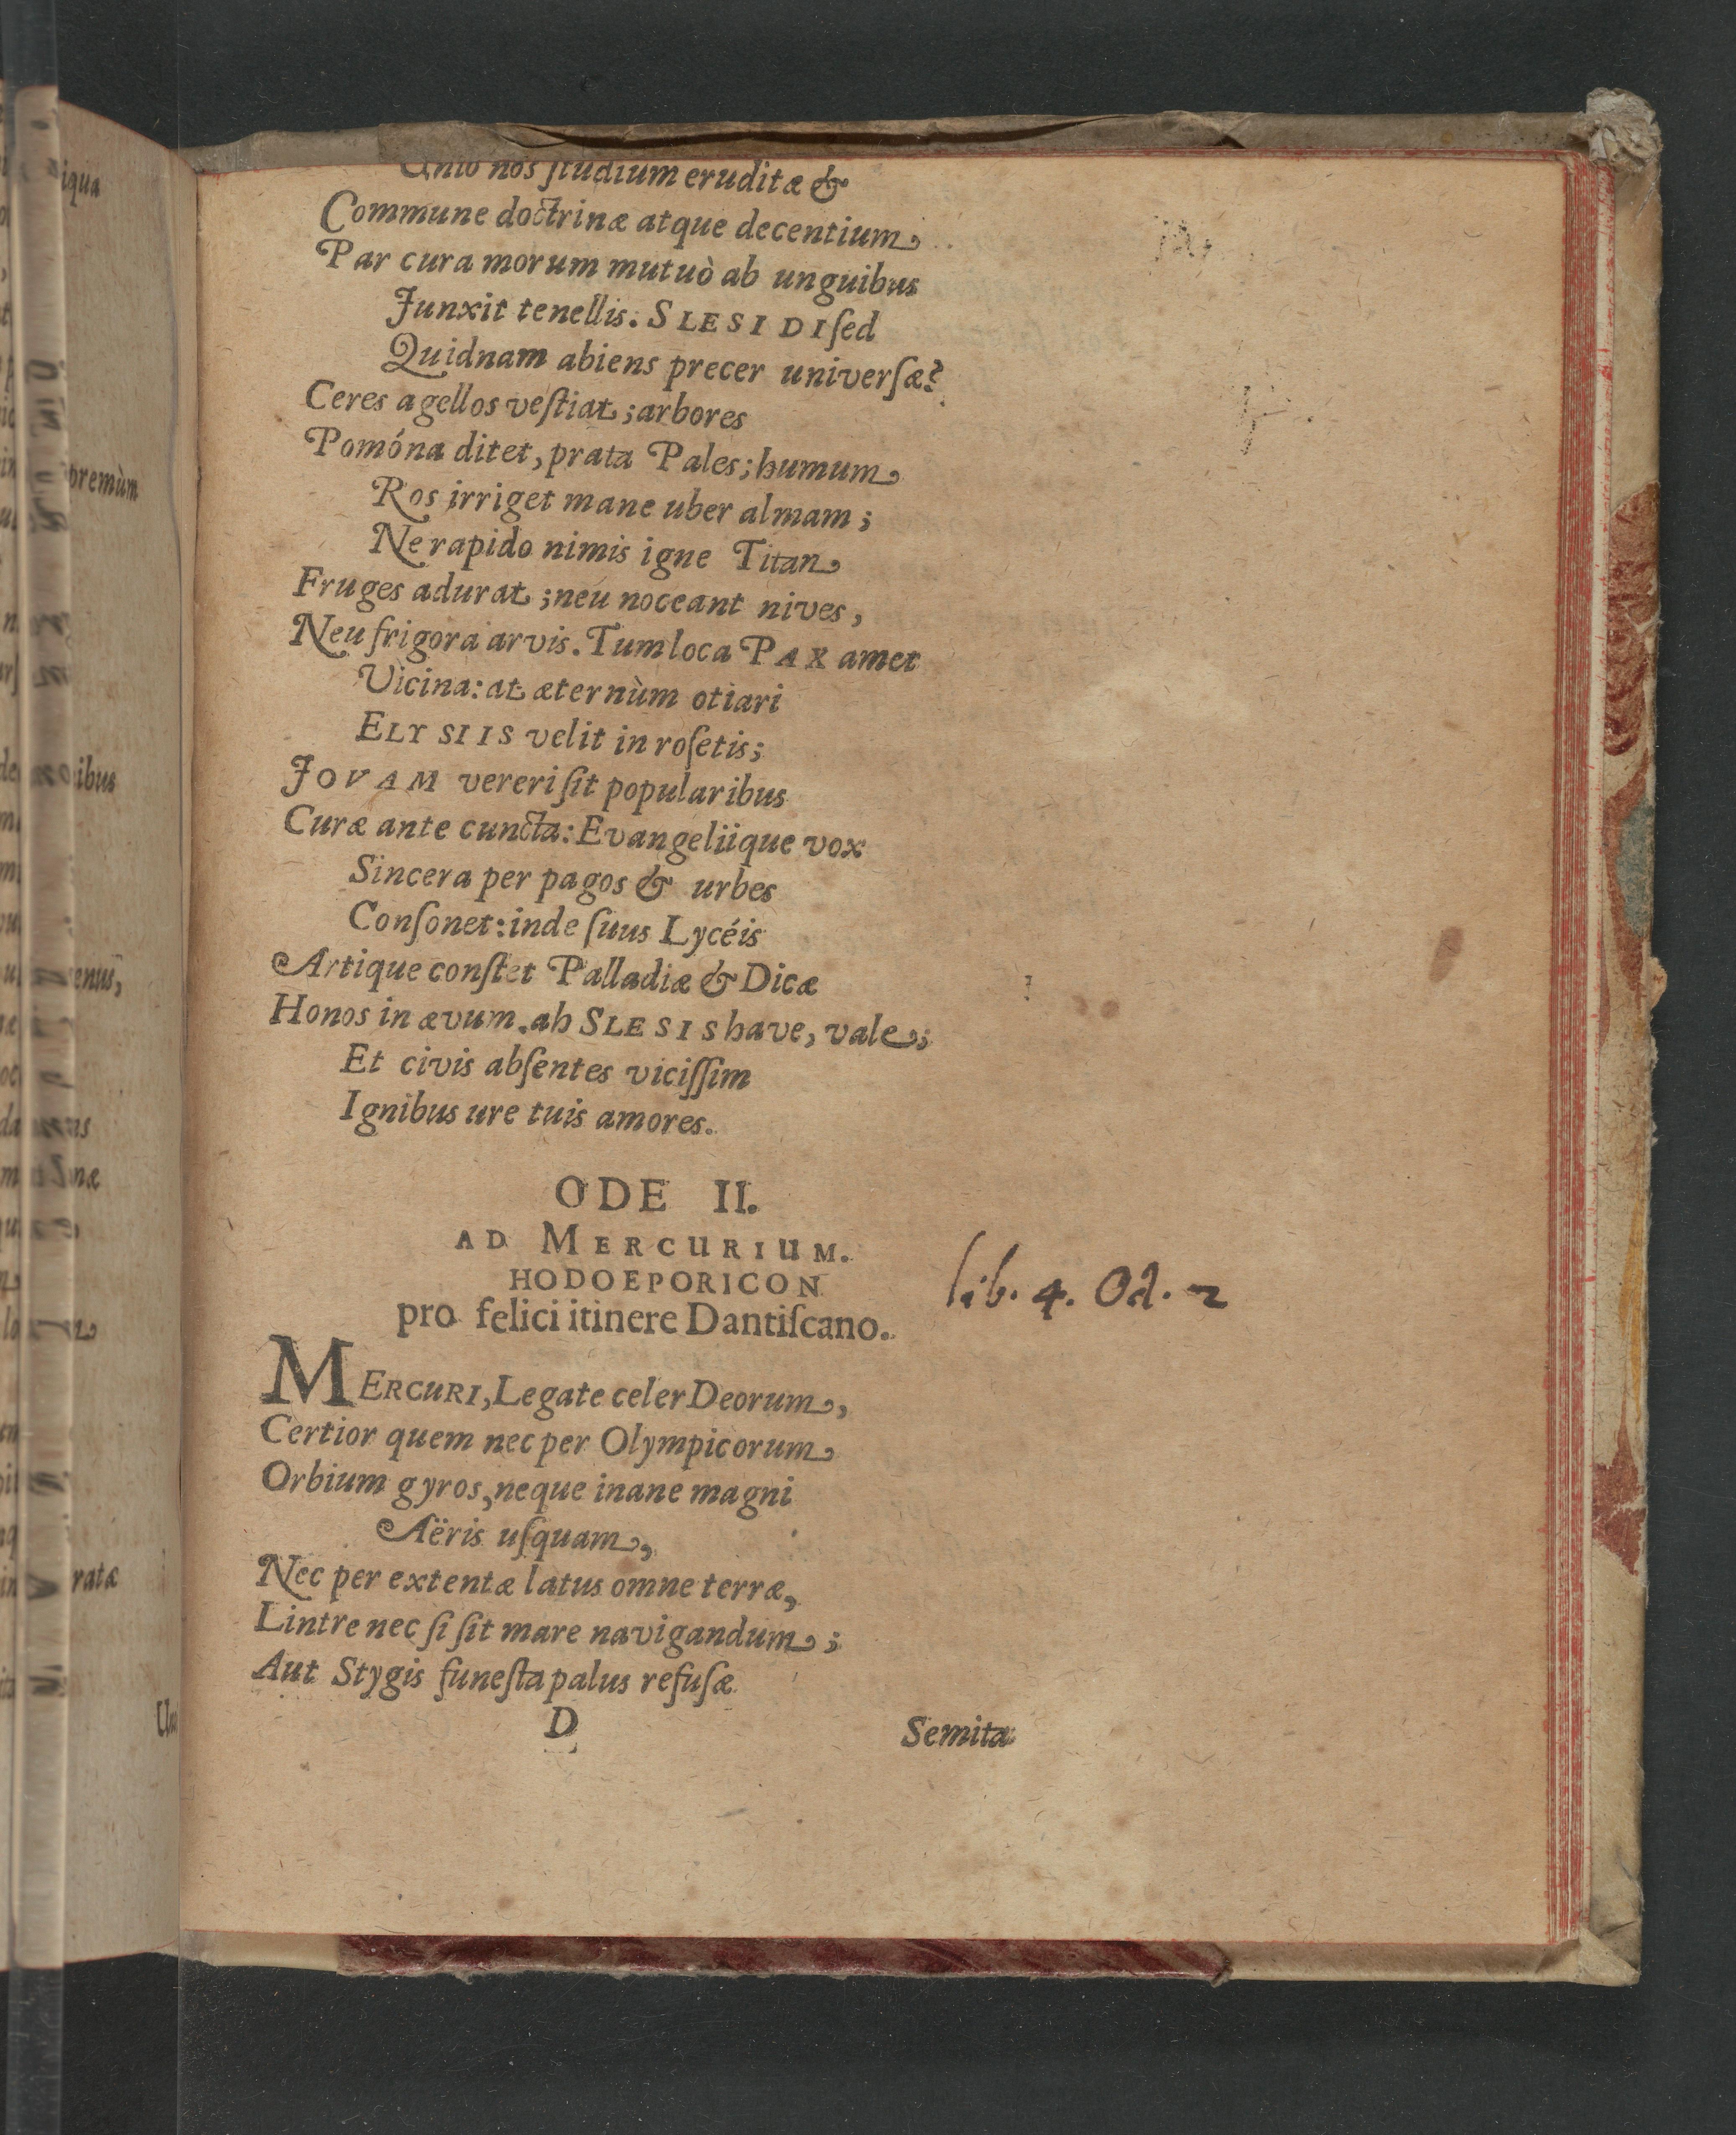 Unio nos ſtudium eruditæ &
Commune doctrinæ atque decentium
Par cura morum mutuò ab unguibus
Junxit tenellis. SLESIDI ſed
Quidnam abiens precer univerſæ?
Ceres agellos veſtiat; arbores
Pomóna ditet, prata Pales; humum
Ros irriget mane uber almam;
Ne rapido nimis igne Titan
Fruges adurat; neu noceant nives,
Neu frigora arvis. Tum loca PAX amet
Vicina: at æternùm otiari
ELYSIIS velit in roſetis;
JOVAM vereri ſit popularibus
Curæ ante cuncta: Evangeliique vox
Sincera per pagos & urbes
Conſonet: inde ſuus Lycéis
Artique conſtet Palladiæ & Dicæ
Honos in ævum. ah SLESIS have, vale;
Et civis abſentes viciſſim
Ignibus ure tuis amores.
ODE II.
AD MERCURIUM.
HODOEPORICON
pro felici itinere Dantiſcano.
lib. 4. Od. 2
MERCURI, Legate celer Deorum,
Certior quem nec per Olympicorum
Orbium gyros, neque inane magni
Aëris uſquam,
Nec per extentæ latus omne terræ,
Lintre nec ſi ſit mare navigandum;
Aut Stygis funeſta palus refuſæ
D
Semita